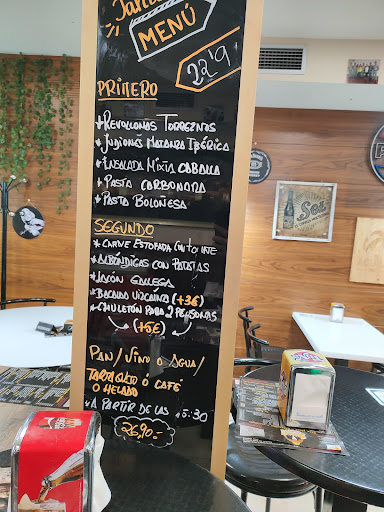 MENÚ
22'9
PRIMERO
*REVOLLONAS TORREZNOS
*JUDIONES MATANZA IBÉRICA
*ENSALADA MIXTA CABALLA
*PASTA CARBONARA
*PASTA BOLOÑESA
SEGUNDO
*CARNE ESTOFADA
*ALBÓNDIGAS CON PATATAS
*LACÓN GALLEGA
*BACALAO VIZCAINO (+3€)
*CHULETÓN PARA 2 PERSONAS
(+6€)
PAN/VINO O AGUA/
O CAFÉ
O HELADO
*A PARTIR DE LAS 15:30
26,90.-